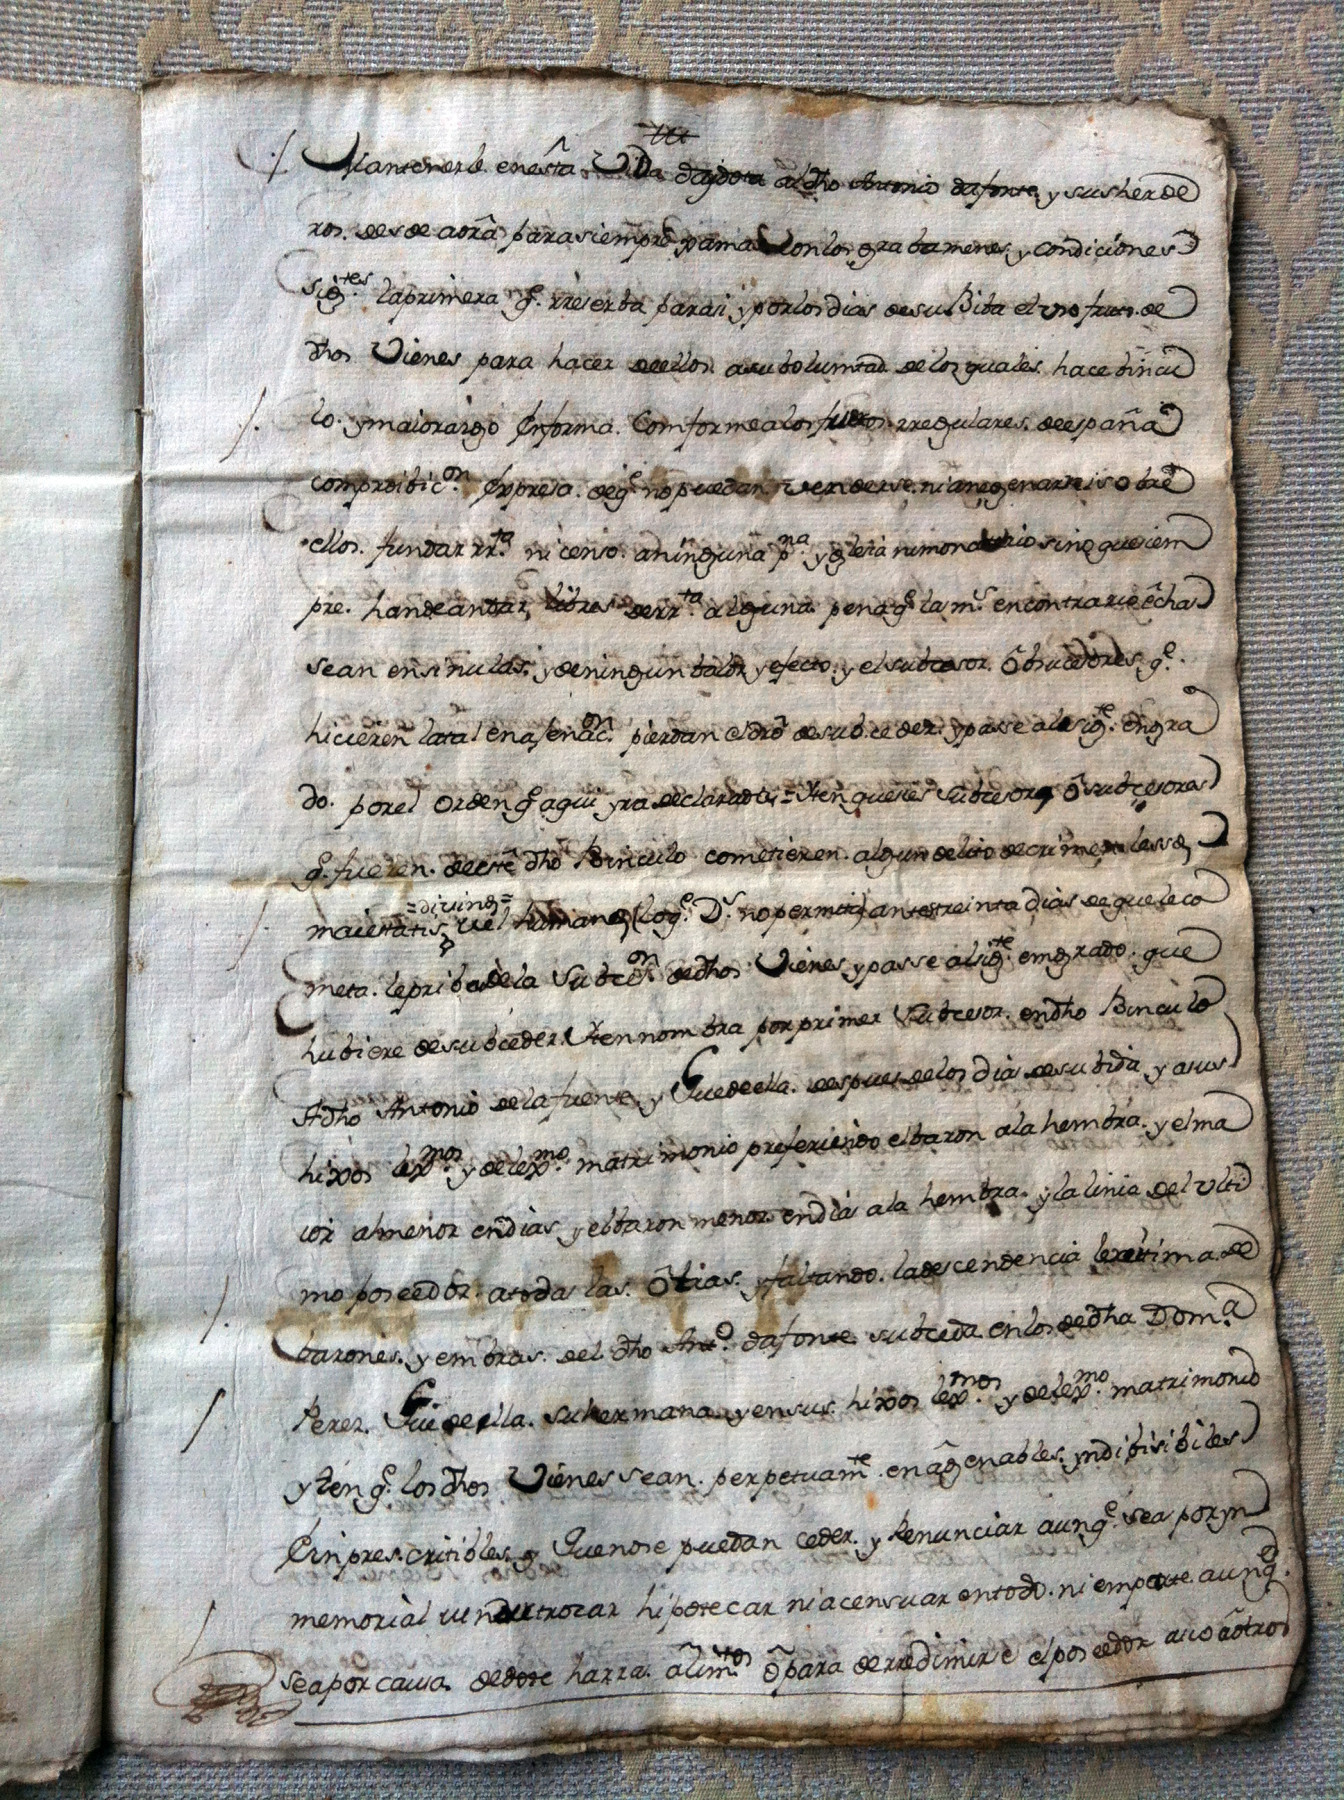 Mantenerle enesta Vida daydota aldho Antonio dafonte y susherede
ros. desde aora parasiempre xamas Conlos grabamenes y condiciones
sigtes. laprimera qe. rreserba parasi y porlosdias desuBida elusofruto. de
dhos Vienes para hacer deellos asuboluntad delosquales hace bincu
lo. ymaioraigo Enforma. Comformealosfueros. rregulares. deespaña
comproibicon. Expresa. deqe nopuedan venderse. nianegenarnisobre
ellos. fundar rrta. nicenso. aninguna pna. yglesia nimonasterio sinoquesiem
pre. handeandar libres derrta. alguna. penaqe lams. encontrario echas
sean ensinulas. ydeningunbalor yefecto. yelsubcesor. Osubcesores. qe.
hicieren latal enagenacon. pierdan eldro desubceder. ypasse alsigte. engra
do. porel ordenqe aqui yra declarado = Yten quesies subcesor O subcesoras
qe. fueren. deeste dho Binculo cometieren. algundelito decrimen lesse
=divine=
maiestatis vel humane (loqe. Ds. nopermita) antestreinta dias dequeleco
meta. lepribadela Subceon. dedhos Vienes ypasse alsigte. emgrado. que
hubiere desubceder. Yten nombra porprimer Subcesor. endho Binculo
Adho Antonio delafuente y Guedeella. despuesdelosdias desubida y asus
hixos lexmos. y delexmo. matrimonio prefiriendo elbaron ala hembra. y elma
ior almenor endias y elbaron menor endias ala hembra. ylalinia delulti
mo poseedor. atodas las. Otras. yfaltando. ladescendencia lexitima. de
barones. y embras. del dho Anto. dafonte. subceda enlosdedha Doma.
Perez. Guedeella. suhermana yensus. hixos lexmos. y delexmo. matrimonio
yten qe. losdhos Vienes sean. perpetuamte. enagenables. yndibisibiles
Einprescritibles. y Quenose puedan ceder. y Renunciar aunqe. sea poryn
memorial trocar hipotecar niacensuar entodo. niemparte. aunqe.
seaporcausa. dedote harra. alimtos. Opara derredimirse elposeedor auo aotro